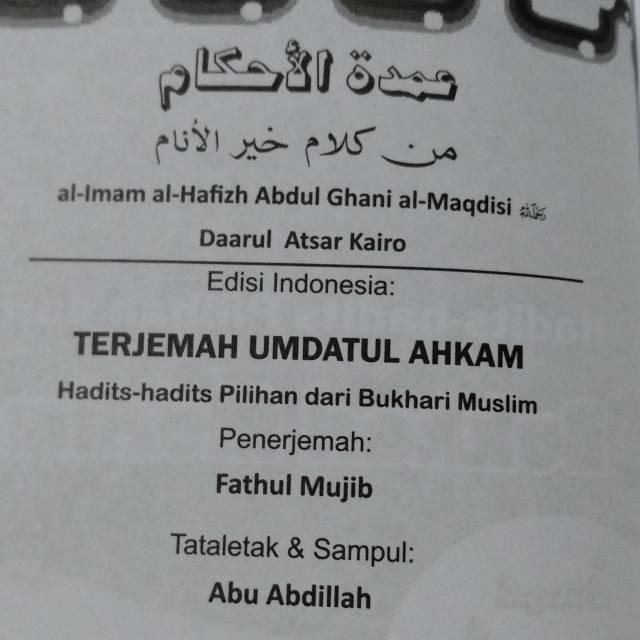 عمدة الأحكام
من كلام خير الأنام
al-Imam al-Hafizh Abdul Ghani al-Maqdisi
Daarul Atsar Kairo
Edisi Indonesia:
TERJEMAH UMDATUL AHKAM
Hadits-hadits Pilihan dari Bukhari Muslim
Penerjemah:
Fathul Mujib
Tataletak & Sampul:
Abu Abdillah